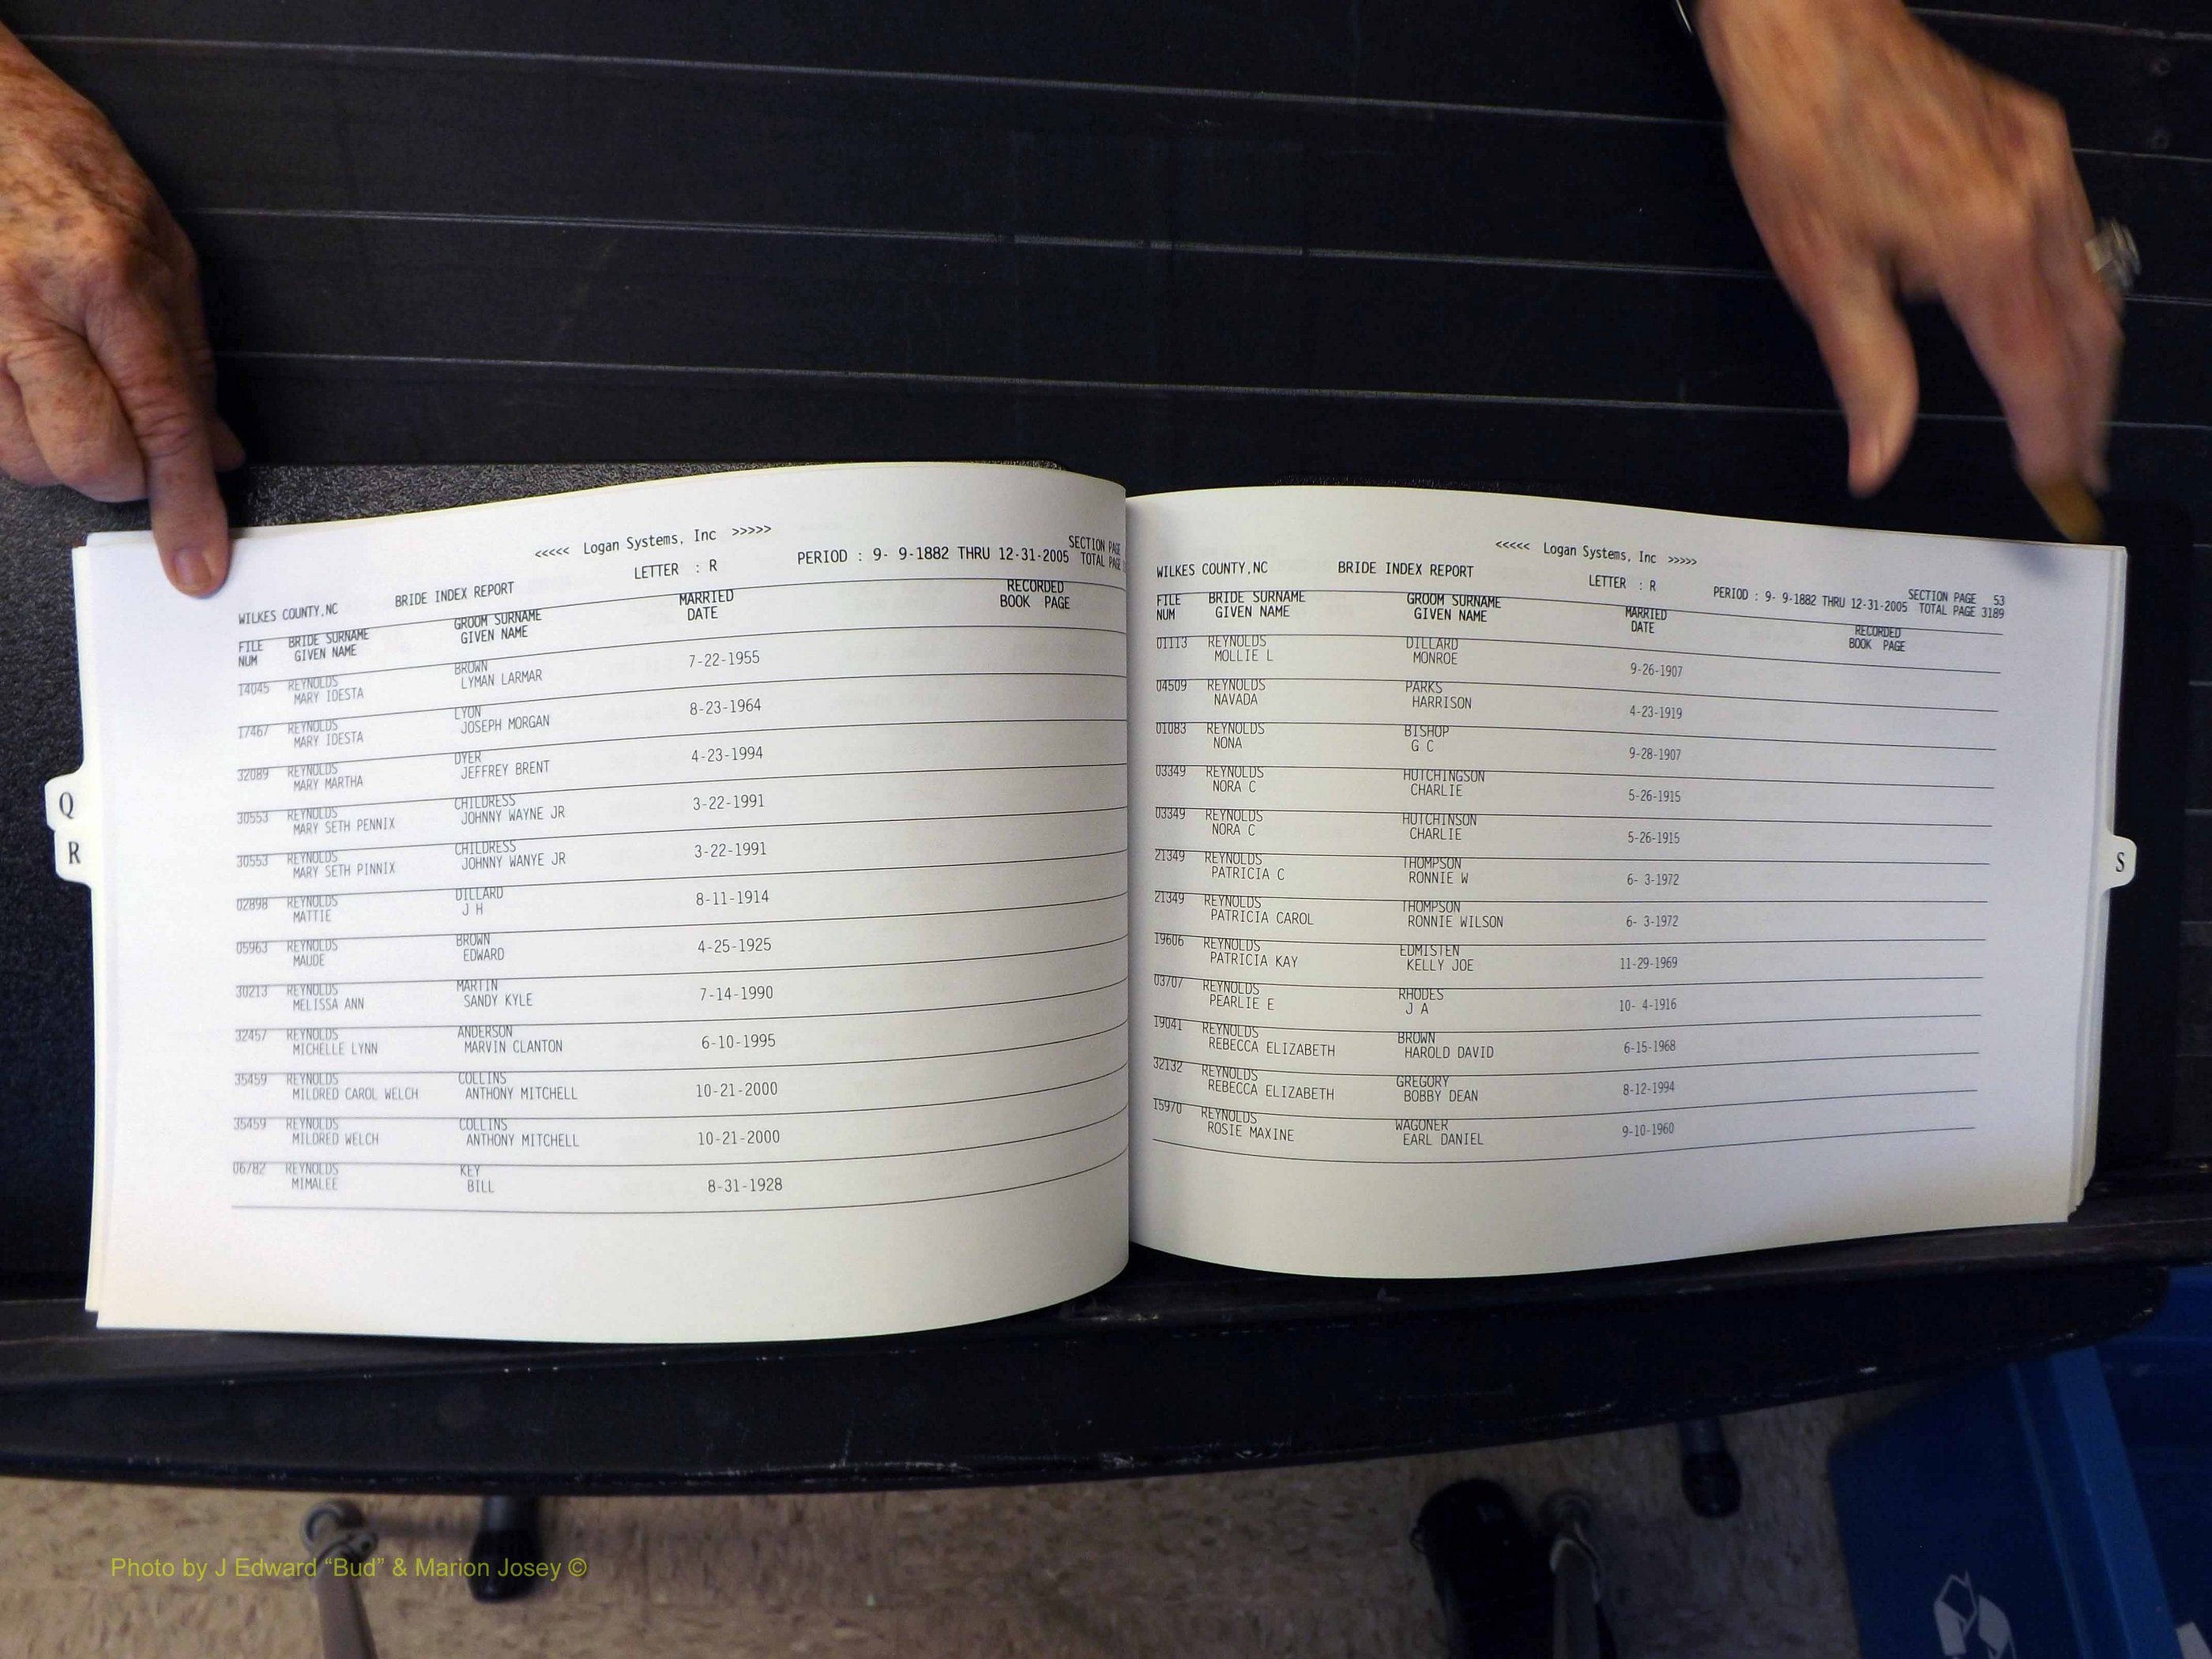 <<<<< Logan Systems, Inc >>>>>
SECTION PAGE
WILKES COUNTY,NC BRIDE INDEX REPORT LETTER : R PERIOD : 9- 9-1882 THRU 12-31-2005 TOTAL PAGE
FILE BRIDE SURNAME GROOM SURNAME MARRIED RECORDED
NUM GIVEN NAME GIVEN NAME DATE BOOK PAGE
14045 REYNOLDS BROWN
MARY IDESTA LYMAN LARMAR 7-22-1955
17467 REYNOLDS LYON
MARY IDESTA JOSEPH MORGAN 8-23-1964
32089 REYNOLDS DYER
MARY MARTHA JEFFREY BRENT 4-23-1994
30553 REYNOLDS CHILDRESS
MARY SETH PENNIX JOHNNY WAYNE JR 3-22-1991
30553 REYNOLDS CHILDRESS
MARY SETH PINNIX JOHNNY WANYE JR 3-22-1991
02898 REYNOLDS DILLARD
MATTIE J H 8-11-1914
05963 REYNOLDS BROWN
MAUDE EDWARD 4-25-1925
30213 REYNOLDS MARTIN
MELISSA ANN SANDY KYLE 7-14-1990
32457 REYNOLDS ANDERSON
MICHELLE LYNN MARVIN CLANTON 6-10-1995
35459 REYNOLDS COLLINS
MILDRED CAROL WELCH ANTHONY MITCHELL 10-21-2000
35459 REYNOLDS COLLINS
MILDRED WELCH ANTHONY MITCHELL 10-21-2000
06782 REYNOLDS KEY
MIMALEE BILL 8-31-1928
Q
R
<<<<< Logan Systems, Inc >>>>>
SECTION PAGE 53
WILKES COUNTY,NC BRIDE INDEX REPORT LETTER : R PERIOD : 9- 9-1882 THRU 12-31-2005 TOTAL PAGE 3189
FILE BRIDE SURNAME GROOM SURNAME MARRIED RECORDED
NUM GIVEN NAME GIVEN NAME DATE BOOK PAGE
01113 REYNOLDS DILLARD
MOLLIE L MONROE 9-26-1907
04509 REYNOLDS PARKS
NAVADA HARRISON 4-23-1919
01083 REYNOLDS BISHOP
NONA G C 9-28-1907
03349 REYNOLDS HUTCHINGSON
NORA C CHARLIE 5-26-1915
03349 REYNOLDS HUTCHINSON
NORA C CHARLIE 5-26-1915
21349 REYNOLDS THOMPSON
PATRICIA C RONNIE W 6- 3-1972
21349 REYNOLDS THOMPSON
PATRICIA CAROL RONNIE WILSON 6- 3-1972
19606 REYNOLDS EDMISTEN
PATRICIA KAY KELLY JOE 11-29-1969
03707 REYNOLDS RHODES
PEARLIE E J A 10- 4-1916
19041 REYNOLDS BROWN
REBECCA ELIZABETH HAROLD DAVID 6-15-1968
32132 REYNOLDS GREGORY
REBECCA ELIZABETH BOBBY DEAN 8-12-1994
15970 REYNOLDS WAGONER
ROSIE MAXINE EARL DANIEL 9-10-1960
S
Photo by J Edward “Bud” & Marion Josey ©